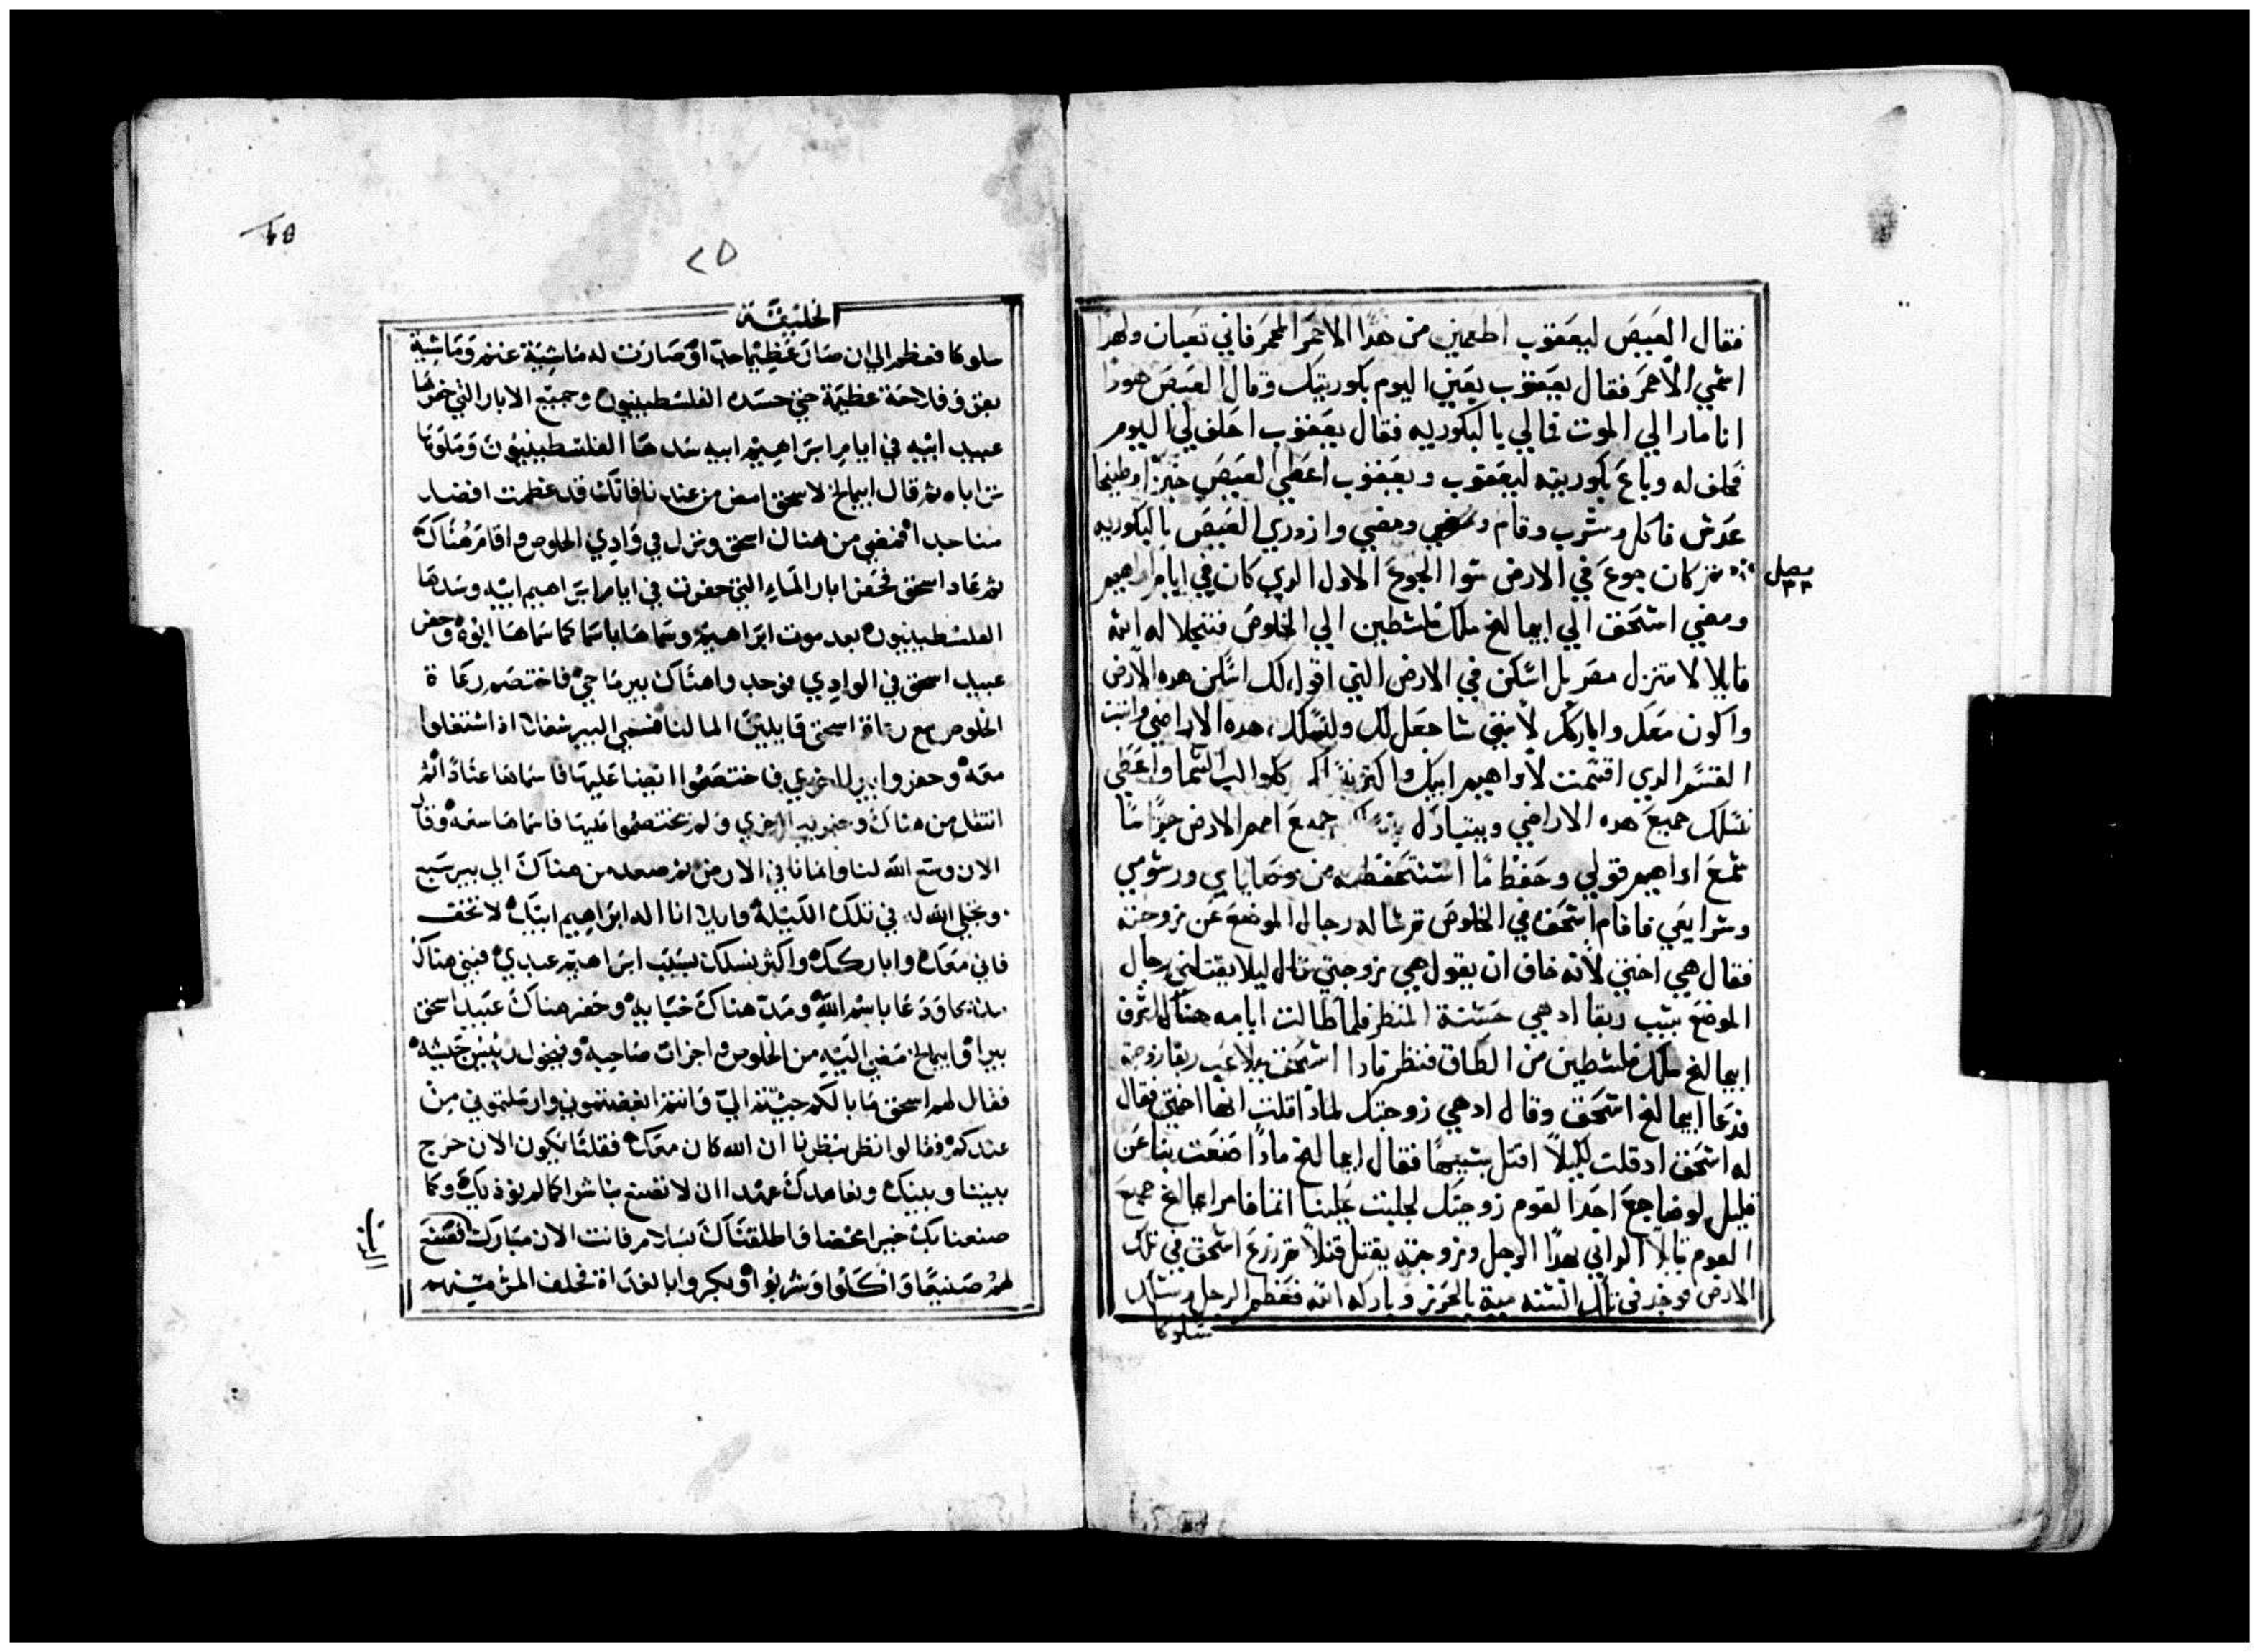 فقال العيص ليعقوب اطعمني من هذا الاحمر المحمر فاني تعبان ولهذا
اسمي الاحمر فقال يعقوب بعني اليوم بكوريتك وقال العيص هوذا
انا مار الي الموت فما لي بالبكوريه فقال يعقوب احلف لي اليوم
فحلف له وباع بكوريته ليعقوب ويعقوب اعطي العيص خبزا وطبيخا
عدس فاكل وشرب وقام ومضي وازدري العيص بالبكوريه
فصل ٣٣
ثم كان جوع في الارض سوا الجوع الاول الدي كان في ايام ابراهيم
ومضي اسحق الي ابيمالخ ملك فلسطين الي الخلوص فتجلا له الله
قايلا لا تنزل مصر بل اسكن في الارض التي اقول لك اسكن هده الارض
واكون معك واباركك لانني ساجعل لك ولنسلك هده الاراضي واثبت
القسم الدي اقسمت لابراهيم ابيك واكثر كواكب السما واعطي
نسلك جميع هده الاراضي ويتبارك جميع امم الارض جزا ما
سمع ابراهيم قولي وحفظ ما استحفظته من وصاياي ورسومي
وشرايعي فاقام اسحق في الخلوص ثم ساله رجال الموضع عن زوجته
فقال هي اختي لانه خاف ان يقول هي زوجتي قال ليلا يقتلني رجال
الموضع بسبب ربقا اد هي حسنة المنظر فلما طالت ايامه هناك اشرف
ابيمالخ ملك فلسطين من الطاق فنظر فادا اسحق يلاعب ربقا زوجته
فدعا ابيمالخ اسحق وقال اد هي زوجتك لمادا قلت انها اختي فقال
له اسحق اد قلت ليلا اقتل بسببها فقال ابيمالخ مادا صنعت بنا عن
قليل لو ضاجع احد القوم زوجتك لجلبت علينا اثما فامر ابيمالخ جميع
القوم قايلا الداني بهدا الرجل وزوجته يقتل قتلا ثم زرع اسحق في تلك
الارض فوجد في تلك السنه مية بالحزز وبارك له الله فعظم الرجل وسلك
سلوكا
٢٥
الخليقة
سلوكا فعظم الي ان صار عظيما جدا وصارت له ماشية غنم وماشية
بقر وفلاحة عظيمة حتي حسده الفلسطينيون وجميع الابار التي حفرها
عبيد ابيه في ايام ابراهيم ابيه سدها الفلسطينيون وملوها
ترابا ثم قال ابيمالخ لاسحق امض من عندنا فانك قد عظمت افضل
منا جدا فمضي من هناك اسحق ونزل في وادي الخلوص واقام هناك
ثم عاد اسحق فحفر ابار الماء التي حفرت في ايام ابراهيم ابيه وسدها
الفلسطينيون بعد موت ابراهيم وسماها باسما كما سماها ابوه وحفر
عبيد اسحق في الوادي فوجدوا هناك بير ما حي فاختصم رعاة
الخلوص مع رعاة اسحق قايلين الما لنا فسمي البير شغلا اذ اشتغلوا
معه وحفروا بيرا اخري فاختصموا ايضا عليها فاسماها عنادا ثم
انتقل من هناك وحفر بيرا اخري ولم يختصموا عليها فاسماها سعه وقال
الان وسع الله لنا وانمانا في الارض ثم صعد من هناك الي بير سبع
وتجلي الله له في تلك الليلة قايلا انا اله ابراهيم ابيك لا تخف
فاني معك واباركك واكثر نسلك بسبب ابراهيم عبدي فبني هناك
مذبحا ودعا باسم الله ومد هناك خبايه وحفر هناك عبيد اسحق
بيرا وابيمالخ مضي اليه من الخلوص واحزات صاحبه وفيخول رييس جيشه
فقال لهم اسحق ما بالكم جيتم الي وانتم ابغضتموني وارسلتموني من
عندكم فقالوا نظر ينظرنا ان الله كان معك فقلنا يكون الان حرج
بيننا وبينك ونعاهدك عهدا ان لا تصنع بنا شرا كما لم نوذيك وكما
صنعنا بك خيرا محضا واطلقناك بسلام فانت الان مبارك فصنع
لهم صنيعا واكلوا وشربوا وبكروا بالغداة فحلف المرء منهم